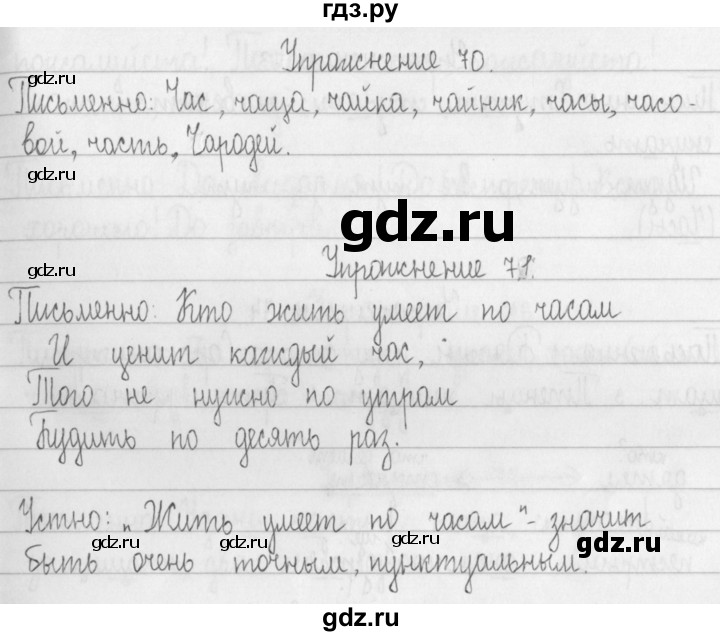 гдз.ру
Упражнение 70.
gdz.ru
Письменно: Час, чаща, чайка, чайник, часы, часо-
вой, часть, Чародей.
gdz.ru
gdz.ru
gdz.ru
Упражнение 71.
Письменно: Кто жить умеет по часам
И ценит каждый час,
Того не нужно по утрам
Будить по десять раз.
Устно: „Жить умеет по часам"- значит
gdz.ru gdz.ru gdz.ru gdz.ru
быть очень точным, пунктуальным.
gdz.ru